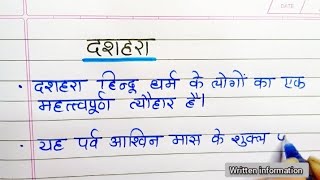 DATE
दशहरा
• दशहरा हिन्दू धर्म के लोगों का एक
महत्त्वपूर्ण त्यौहार है।
• यह पर्व आश्विन मास के शुक्ल
Written information